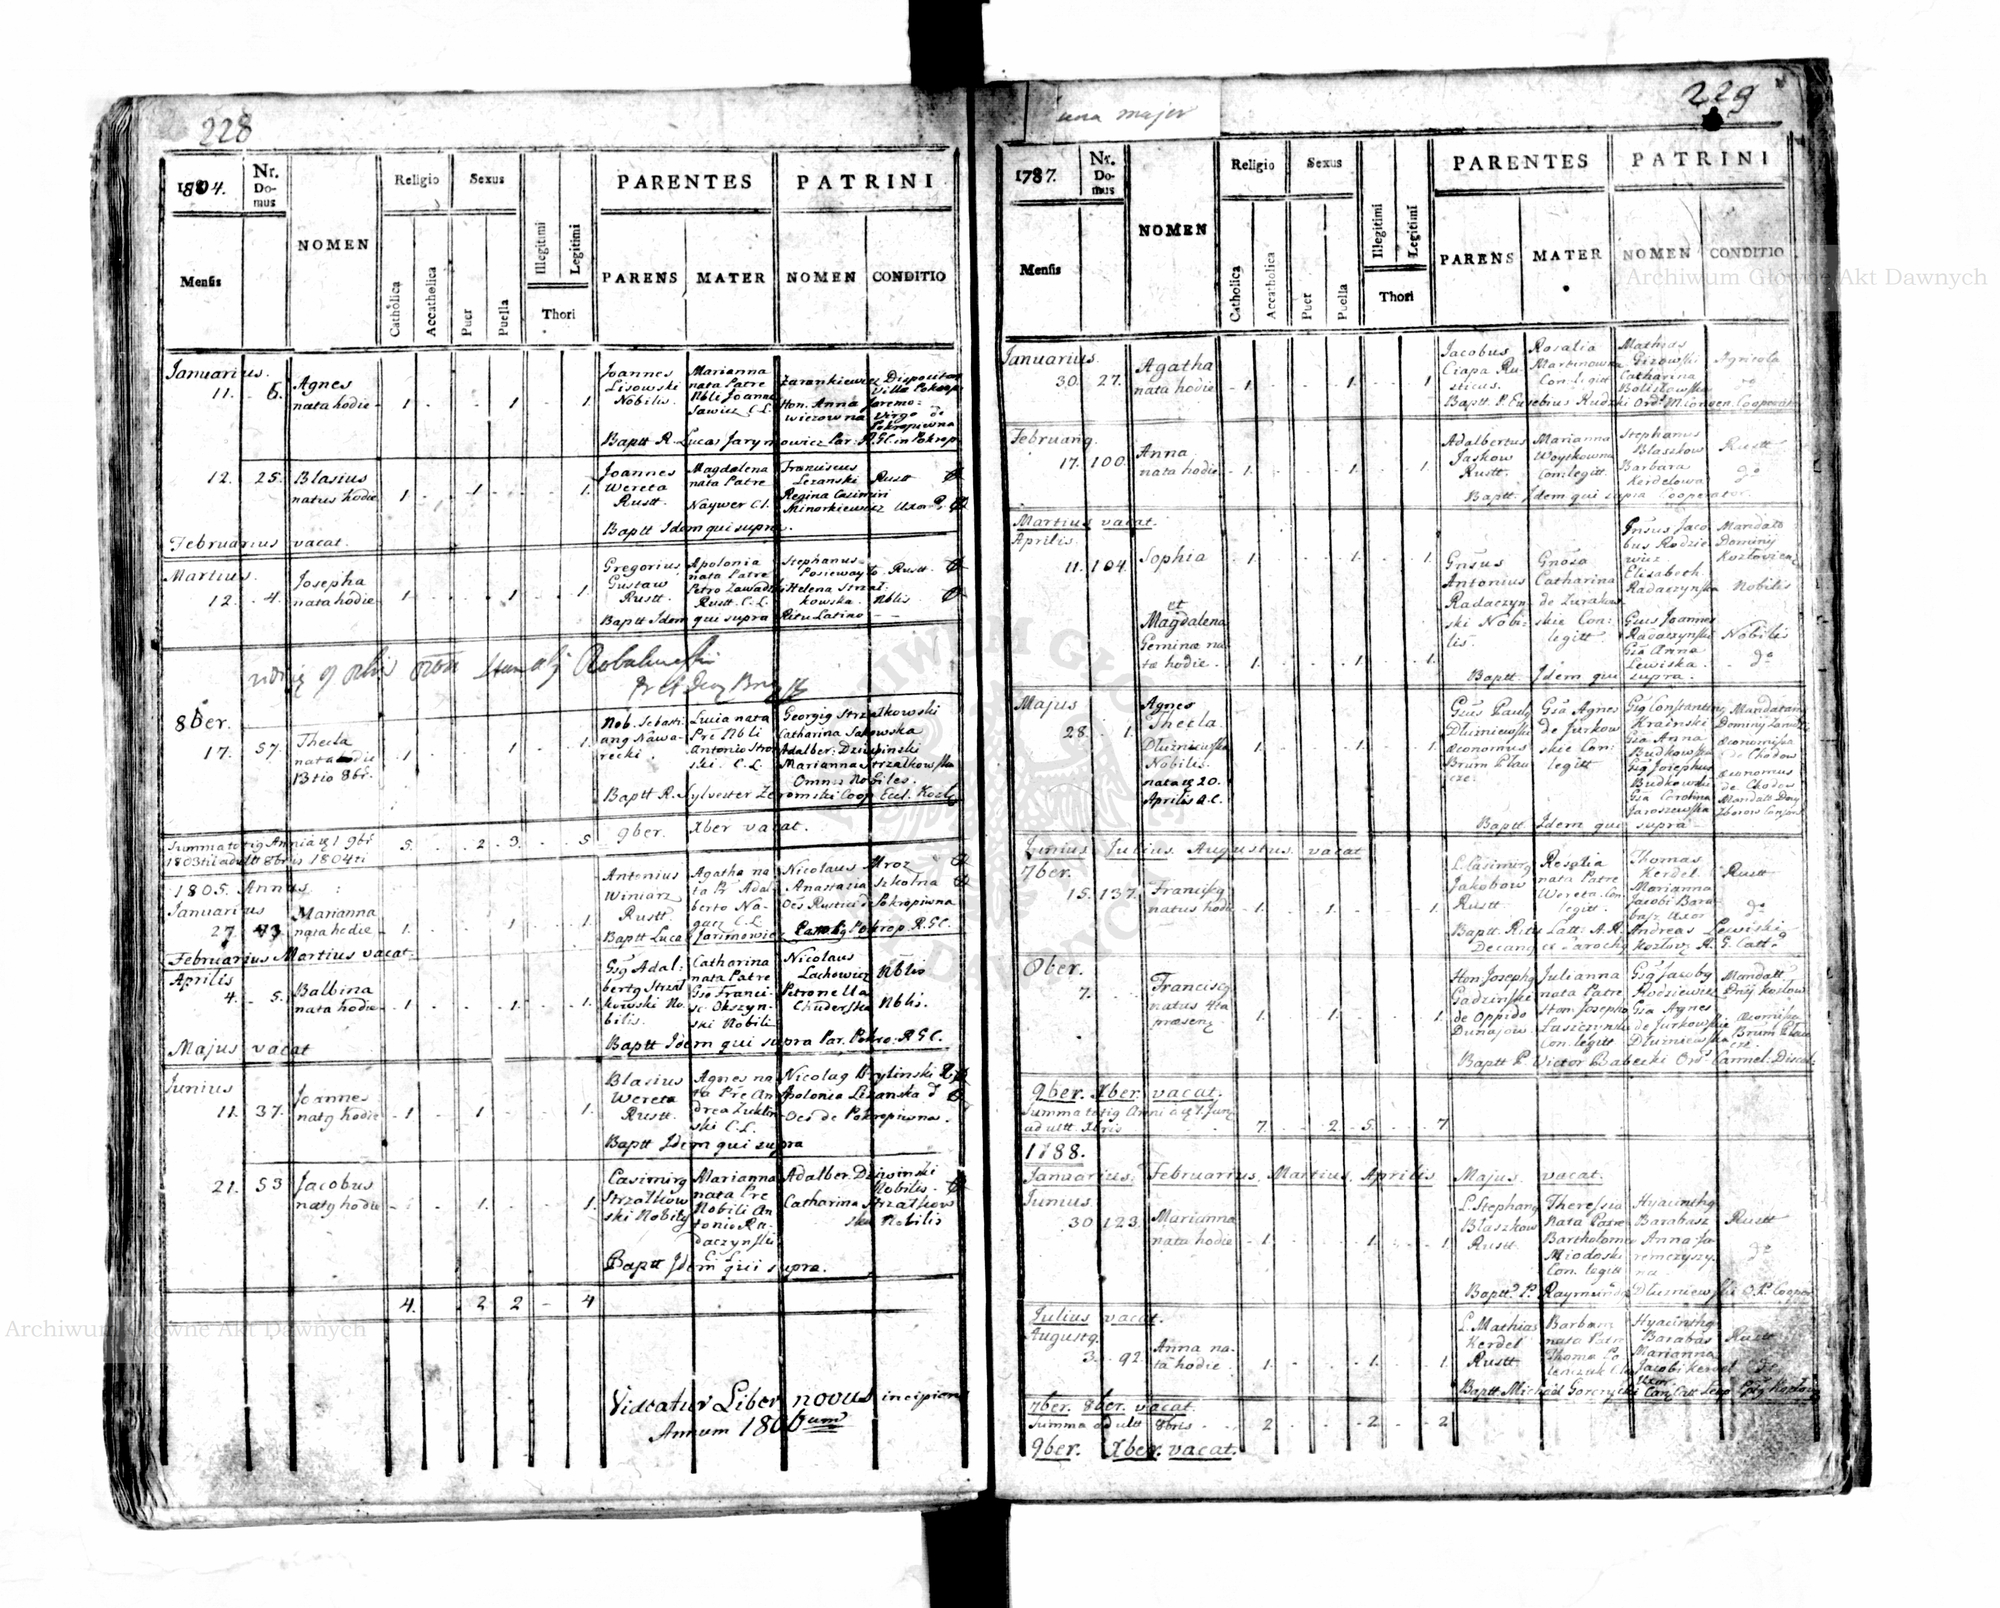 228
1804.
Nr. Domus
NOMEN
Religio
Sexus
PARENTES
PATRINI
Mensis
Catholica
Accatholica
Puer
Puella
Illegitimi
Legitimi
Thori
PARENS
MATER
NOMEN
CONDITIO
Januarius.
11. 6. Agnes
nata hodie 1 1 1.
Joannes
Lisowski
Nobilis.
Marianna
nata Patre
Nbli Joanne
Sawicz C.L.
Zarankiewicz Disposit
Villa Pokrop
Hon. Anna Jaremo=
wiczowna Virgo de
Pokropiwna
Baptt R. Lucas Jarymowicz Par: R.G.C. in Pokrop
12. 25. Blasius
natus hodie 1 1 1.
Joannes
Wereta
Rustt.
Magdalena
nata Patre
Naywer C.L.
Franciscus
Lezanski Rustt
Regina Casimiri
Minorkiewicz Uxor
Baptt Idem qui supra.
Februarius vacat.
Martius.
12. 4. Josepha
nata hodie 1 1 1.
Gregorius
Gustaw
Rustt.
Apolonia
nata Patre
Petro Zawadzki
Rustt. C.L.
Stephanus
Rustt.
Helena Strzał
kowska. Nblis
Baptt Idem qui supra Ritu Latino
8ber.
17. 57. Thecla
nata hodie
13tio 8br. 1 1 1.
Nob. Sebasti
ang Nawa
recki.
Lucia nata
Pre Nbli
Antonio Stroń
ski. C.L.
Georgig Strzałkowski
Catharina Sakowska
Adalber: Dziwinski
Marianna Strzałkowska
Omnes Nobiles.
Baptt R. Sylvester Zeromski Coop Eccl. Kozl
9ber. Xber vacat.
Summa totig Anni a 1 9br
1803tii ad ult 8bris 1804ti 5 2 3 5
1805. Annus:
Januarius
27. 43. Marianna
nata hodie 1 1 1.
Antonius
Winiarz
Rustt
Agatha na
ta Pr Adal
berto No-
gacz C.L.
Nicolaus Mroz
Anastasia Szkolna
Oes Rustici de Pokropiwna
Baptt Luca Jarimowicz Pokrop. R.G.C.
Februarius Martius vacat.
Aprilis
4. 5. Balbina
nata hodie 1 1 1.
Gsg Adal:
bertg Strzał
kowski No
bilis.
Catharina
nata Patre
Gso Franci-
sc Okszyn-
ski Nobili
Nicolaus
Lachowicz Nblis
Petronella
Chuderska Nblis.
Baptt Idem qui supra Par. Pokro: R.G.C.
Majus vacat
Junius
11. 37. Joannes
natg hodie 1 1 1.
Blasius
Wereta
Rustt.
Agnes na
ta Pre An
drea Zuklin
ski C.L.
Nicolag Wrylinski
Apolonia Lezanska
Oes de Pokropiwna.
Baptt Idem qui supra
21. 53 Jacobus
natg hodie 1 1. 1.
Casimirg
Strzałkow
ski Nobilg
Marianna
nata Pre
Nobili An
tonio Ra-
daczynski
C. L.
Adalber. Dziwinski
Nobilis.
Catharina Strzałkow
ska Nobilis
Baptt Idem qui supra.
4. 2 2 4
Videatur Liber novus incipiens
Annum 1806um
una major
229
1787.
Nr. Domus
NOMEN
Religio
Sexus
PARENTES
PATRINI
Mensis
Catholica
Accatholica
Puer
Puella
Illegitimi
Legitimi
Thori
PARENS
MATER
NOMEN
CONDITIO
Januarius.
30. 27. Agatha
nata hodie 1. 1 1
Jacobus
Ciapa Ru
sticus.
Rosalia
Martinowna
Con. Legitt
Mathias
Gizowski Agricola
Catharina
Bolisłowska do
Baptt. P. Eusebius Rudzki Ord. M. Conven. Cooperator
Februarig.
17. 100. Anna
nata hodie 1. 1 1
Adalbertus
Jaskow
Rustt.
Marianna
Woytkowna
Con. legitt.
Stephanus
Blaszkow Rustt
Barbara
Kerdelowa do
Baptt. Idem qui supra Cooperator.
Martius vacat.
Aprilis.
11. 104. Sophia 1. 1. 1.
et
Magdalena
Geminæ na
tæ hodie. 1. 1. 1.
Gnsus
Antonius
Radaczyn
ski Nobi-
lis.
Gnosa
Catharina
de Zurakow
skie Con:
legitt.
Gnsus Jaco
bus Rodzie
wicz
Mandato
Dominij
Kozłoviens
Elisabeth
Radaczynska Nobilis
Gsus Joannes
Radaczynski Nobilis
Gsa Anna
Lewiska. do
Baptt. Idem qui supra.
Majus
28. 1. Agnes
Thecla
Dłuzniewska
Nobilis
nata 20.
Aprilis a.c. 1 1 1
Gsus Paulg
Dłuzniewski
Œconomus
Gsa Agnes
de Jurkow
skie Con:
legitt
Gsg Constanting
Krainski
Gsa Anna
Budkowska
Gsg Josephus
Budkowski
Gsa Carolina
Jaroszewska
Œconomissa
de Chodow
Œconomus
de Chodow
Baptt Idem qui supra
Junius Julius. Augustus. vacat
7ber.
15. 137. Franciscg
natus hodie 1. 1. 1.
L. Casimirg
Jakobow
Rustt.
Rosalia
nata Patre
Wereta. Con
legitt.
Thomas
Kerdel Rustt
Marianna
Jacobi Bara
basz Uxor do
Baptt. Ritu Latt: A.R. Andreas Lewiski
Decang et Parochg Kozlovg R. G. Catt.
8ber.
7. Franciscg
natus 4ta
præsens 1. 1. 1.
Hon. Josephg
Gadzinski
de Oppido
Dunajow
Julianna
nata Patre
Hon. Josepho
Luszczynski
Con. legitt
Gsg Jacobg
Rodziewicz
Gsa Agnes
de Jurkowskie
Dłuzniewska
Mandatt
Dnij Kozlow
Baptt P. Victor Babecki Ord. Carmel: Discal.
9ber. Xber. vacat.
Summa totig Anni
ad ultt. Xbris 7 2 5 7
1788.
Januarius. Februarius. Martius. Aprilis Majus vacat.
Junius.
30 123. Marianna
nata hodie 1. 1. 1.
L. Stephang
Blaszkow
Rustt.
Theressia
nata Patre
Bartholomeo
Miodoski
Con. legitt
Hyacinthg
Barabasz Rustt
Anna Ja
remczyszy
na do
Baptt. P. Raymund Dłuzniewski O.P. Cooper
Julius vacat.
Augustg.
3. 92. Anna na-
ta hodie. 1. 1. 1.
L. Mathias
Kerdel
Rustt
Barbara
nata Patre
Thoma
Hyacinthg
Barabas Rustt
Marianna
Jacobi Kerdel
Uxor.
Baptt Michael Gorczycki
7ber. 8ber. vacat.
Summa ad ultt 8bris 2 2 2
9ber. Xber. vacat.
Archiwum Główne Akt Dawnych
Archiwum Główne Akt Dawnych